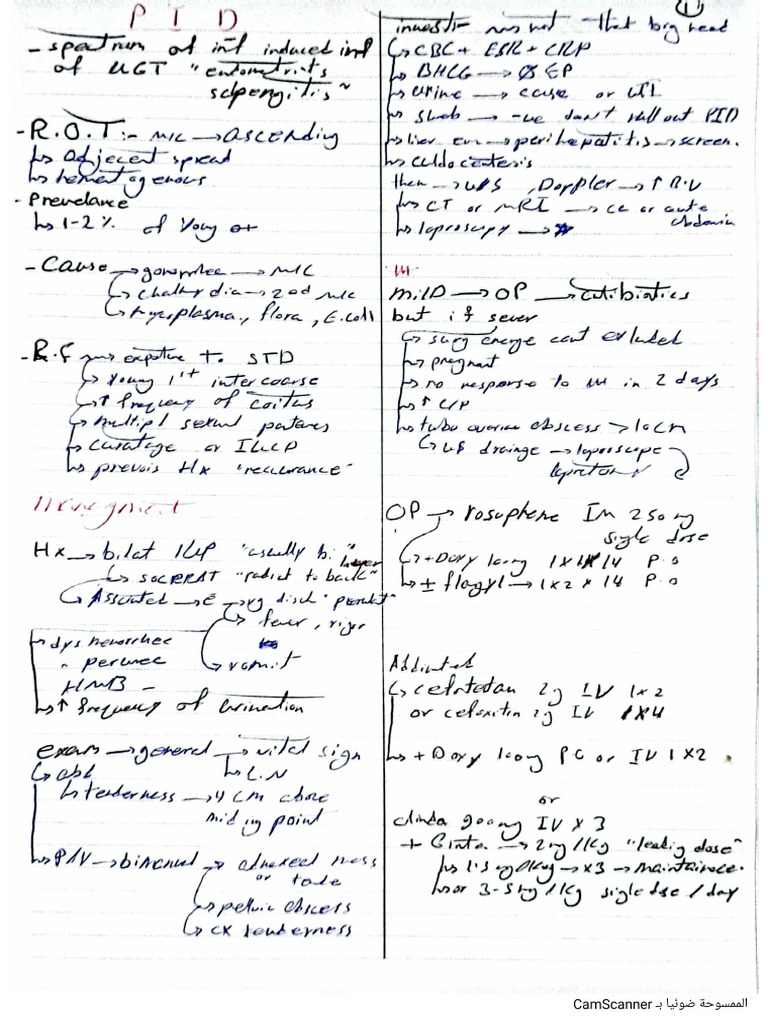 P I D
- spectrum of inf induced inf
of UGT "endometrits
salpengitis"
- R.O.T :- MIC → ASCENDING
↳ adjecent spread
↳ hematogenous
- Prevelance
↳ 1-2% of young
- Cause → gonorrhee → MIC
↳ → 2nd MIC
↳ Mycoplasma, flora, E.coli
- R.F → expoture to STD
↳ young 1st intercoarse
↳ ↑ frequency of coitus
↳ multipl sexual partners
↳ curatage or IUCD
↳ prevois Hx "recurrance"
Managment
Hx → bilat "usually bi" lower
↳ SOCRRAT "radiat to back"
↳ Assosiated → → vg disch
↳ fever, rigor
↳ vomit
↳ dysmenorrhee
HMB -
↳ ↑ frequency of urination
exam → general → vital sign
↳ L.N
↳ abd
↳ tenderness → 4 cm above
mid ing point
↳ P/V → bimanual → adnexeal mess
or
↳ pelvic abscess
↳ CX tenderness
①
investi → not that big need
↳ CBC + ESR + CRP
↳ BHCG → EP
↳ urine → cause or UTI
↳ swab → -ve don't rull out PID
↳ liver en → perihepatitis → screen.
↳ culdocentesis
then → U/S, Doppler → ↑
↳ CT or MRI → or acute
abdomin
↳ laproscopy →
MILD → OP → antibiotics
but if sever
↳ surg emerge cant exluded
↳ pregnant
↳ no response to in 2 days
↳ ↑
↳ tubo ovarian abscess > 10 cm
↳ U/S drainge → laproscope
OP → rosuphene IM 250 mg
single dose
↳ + Doxy 100 mg 1 x 14 P.O
↳ ± flagyl → 1 x 2 x 14 P.O
Addmited
↳ cefotetan 2g IV 1 x 2
or cefoxitin 2g IV 1 x 4
↳ + Doxy 100 mg PO or IV 1 x 2 .
or
clinda 900 mg IV x 3
+ Genta → 2 mg/kg "leadig dose"
↳ 1.5 mg/kg → x3 → maintainece.
↳ or 3-5 mg/kg sigle dose / day
الممسوحة ضوئيا بـ CamScanner